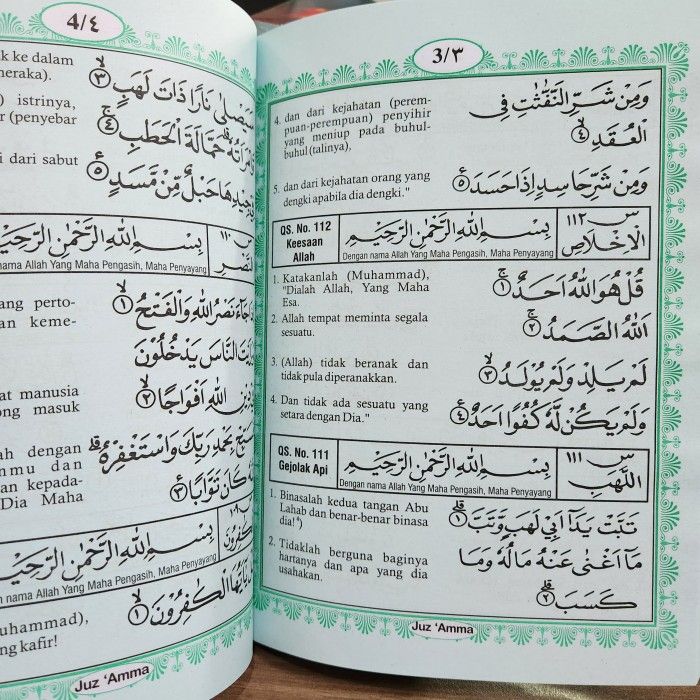 3/٣
وَمِنْ شَرِّ النَّفّٰثٰتِ فِى
الْعُقَدِۙ ٤
4. dan dari kejahatan (perem-
puan-perempuan) penyihir
yang meniup pada buhul-
buhul (talinya),
وَمِنْ شَرِّ حَاسِدٍ اِذَا حَسَدَ ٥
5. dan dari kejahatan orang yang
dengki apabila dia dengki."
س ١١٢
الْاِخْلَاصِ
بِسْمِ اللّٰهِ الرَّحْمٰنِ الرَّحِيْمِ
Dengan nama Allah Yang Maha Pengasih, Maha Penyayang
QS. No. 112
Keesaan
Allah
قُلْ هُوَ اللّٰهُ اَحَدٌۚ ١
اَللّٰهُ الصَّمَدُۚ ٢
لَمْ يَلِدْ وَلَمْ يُوْلَدْۙ ٣
وَلَمْ يَكُنْ لَّهٗ كُفُوًا اَحَدٌ ٤
1. Katakanlah (Muhammad),
"Dialah Allah, Yang Maha
Esa.
2. Allah tempat meminta segala
sesuatu.
3. (Allah) tidak beranak dan
tidak pula diperanakkan.
4. Dan tidak ada sesuatu yang
setara dengan Dia."
س ١١١
اللَّهَبِ
بِسْمِ اللّٰهِ الرَّحْمٰنِ الرَّحِيْمِ
Dengan nama Allah Yang Maha Pengasih, Maha Penyayang
QS. No. 111
Gejolak Api
تَبَّتْ يَدَآ اَبِيْ لَهَبٍ وَّتَبَّۗ ١
مَآ اَغْنٰى عَنْهُ مَالُهٗ وَمَا
كَسَبَۗ ٢
1. Binasalah kedua tangan Abu
Lahab dan benar-benar binasa
dia! *)
2. Tidaklah berguna baginya
hartanya dan apa yang dia
usahakan.
Juz 'Amma
4/٤
سَيَصْلٰى نَارًا ذَاتَ لَهَبٍۙ ٣
وَّامْرَاَتُهٗۗ حَمَّالَةَ الْحَطَبِۚ ٤
فِيْ جِيْدِهَا حَبْلٌ مِّنْ مَّسَدٍ ٥
k ke dalam
eraka).
istrinya,
(penyebar
dari sabut
س ١١٠
النَّصْرِ
بِسْمِ اللّٰهِ الرَّحْمٰنِ الرَّحِيْمِ
nama Allah Yang Maha Pengasih, Maha Penyayang
اِذَا جَاۤءَ نَصْرُ اللّٰهِ وَالْفَتْحُۙ ١
وَرَاَيْتَ النَّاسَ يَدْخُلُوْنَ
فِيْ دِيْنِ اللّٰهِ اَفْوَاجًاۙ ٢
فَسَبِّحْ بِحَمْدِ رَبِّكَ وَاسْتَغْفِرْهُۗ
اِنَّهٗ كَانَ تَوَّابًا ٣
ang perto-
an keme-
at manusia
ong masuk
lah dengan
nmu dan
n kepada-
Dia Maha
س ١٠٩
الْكٰفِرُوْنَ
بِسْمِ اللّٰهِ الرَّحْمٰنِ الرَّحِيْمِ
n nama Allah Yang Maha Pengasih, Maha Penyayang
يٰٓاَيُّهَا الْكٰفِرُوْنَۙ ١
uhammad),
ng kafir!
Juz 'Amma